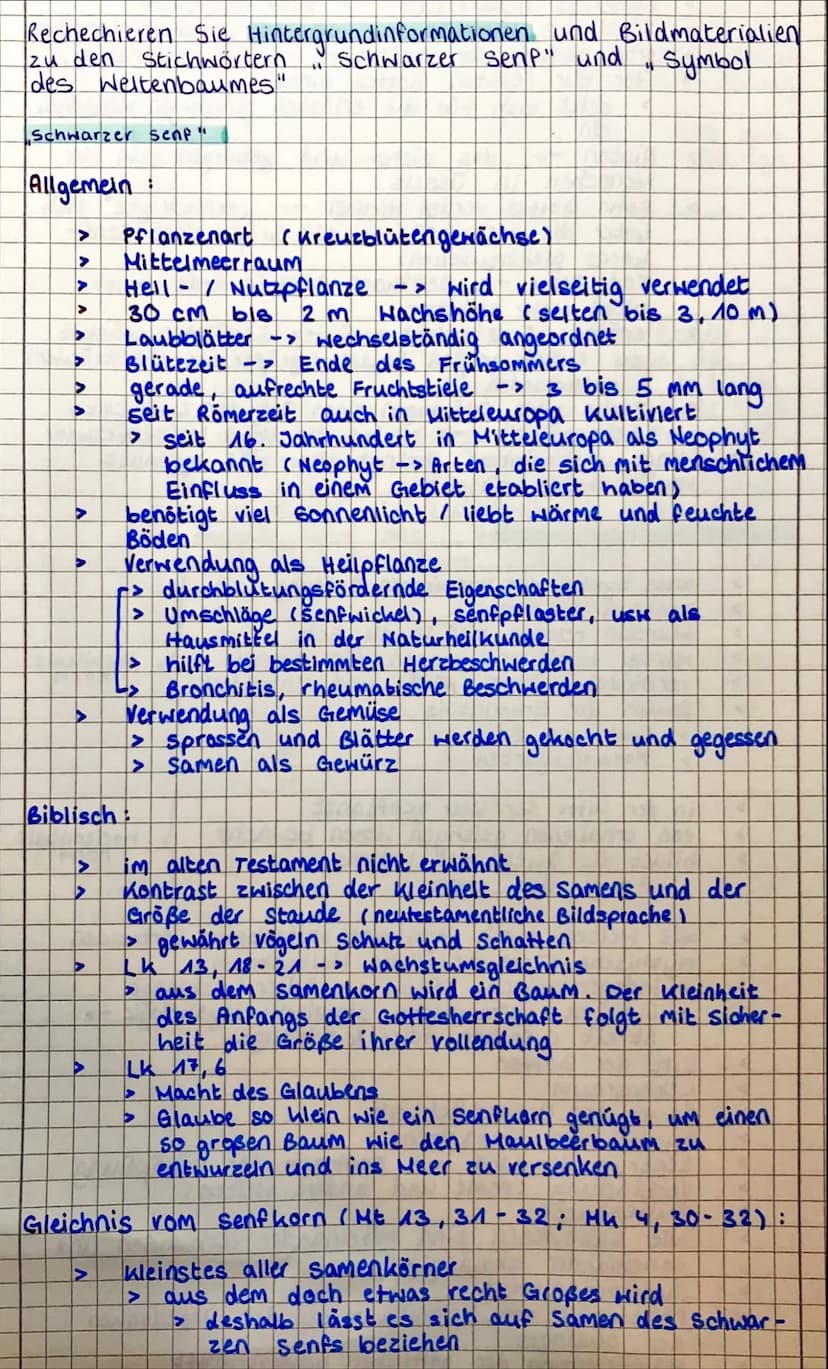 Rechechieren Sie Hintergrundinformationen und Bildmaterialien
zu den Stichwörtern „Schwarzer Senf" und „Symbol
des Weltenbaumes"
„Schwarzer Senf"
Allgemein :
> Pflanzenart (Kreuzblütengewächse)
> Mittelmeerraum
> Heil- / Nutzpflanze -> wird vielseitig verwendet
> 30 cm bis 2 m Wachshöhe (selten bis 3,10 m)
> Laubblätter -> wechselständig angeordnet
> Blütezeit -> Ende des Frühsommers
> gerade, aufrechte Fruchtstiele -> 3 bis 5 mm lang
> seit Römerzeit auch in Mitteleuropa kultiviert
> seit 16. Jahrhundert in Mitteleuropa als Neophyt
bekannt (Neophyt -> Arten, die sich mit menschlichem
Einfluss in einem Gebiet etabliert haben)
> benötigt viel Sonnenlicht / liebt Wärme und feuchte
Böden
> Verwendung als Heilpflanze
> durchblutungsfördernde Eigenschaften
> Umschläge (Senfwickel), Senfpflaster, usw als
Hausmittel in der Naturheilkunde
> hilft bei bestimmten Herzbeschwerden
> Bronchitis, rheumatische Beschwerden
> Verwendung als Gemüse
> Sprossen und Blätter werden gekocht und gegessen
> Samen als Gewürz
Biblisch :
> im alten Testament nicht erwähnt
> Kontrast zwischen der Kleinheit des Samens und der
Größe der Staude (neutestamentliche Bildsprache)
> gewährt Vögeln Schutz und Schatten
> Lk 13, 18-21 -> Wachstumsgleichnis
> aus dem Samenkorn wird ein Baum. Der Kleinheit
des Anfangs der Gottesherrschaft folgt mit Sicher-
heit die Größe ihrer Vollendung
> Lk 17,6
> Macht des Glaubens
> Glaube so klein wie ein Senfkorn genügt, um einen
so großen Baum wie den Maulbeerbaum zu
entwurzeln und ins Meer zu versenken
Gleichnis vom Senfkorn (Mt 13, 31-32; Mk 4, 30-32) :
> Kleinstes aller Samenkörner
> aus dem doch etwas recht Großes wird
> deshalb lässt es sich auf Samen des Schwar-
zen Senfs beziehen